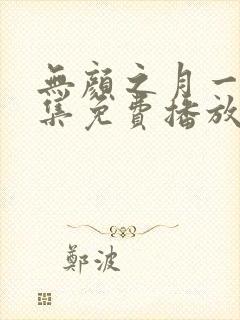 無顔之月一
集免費播放
鄭波